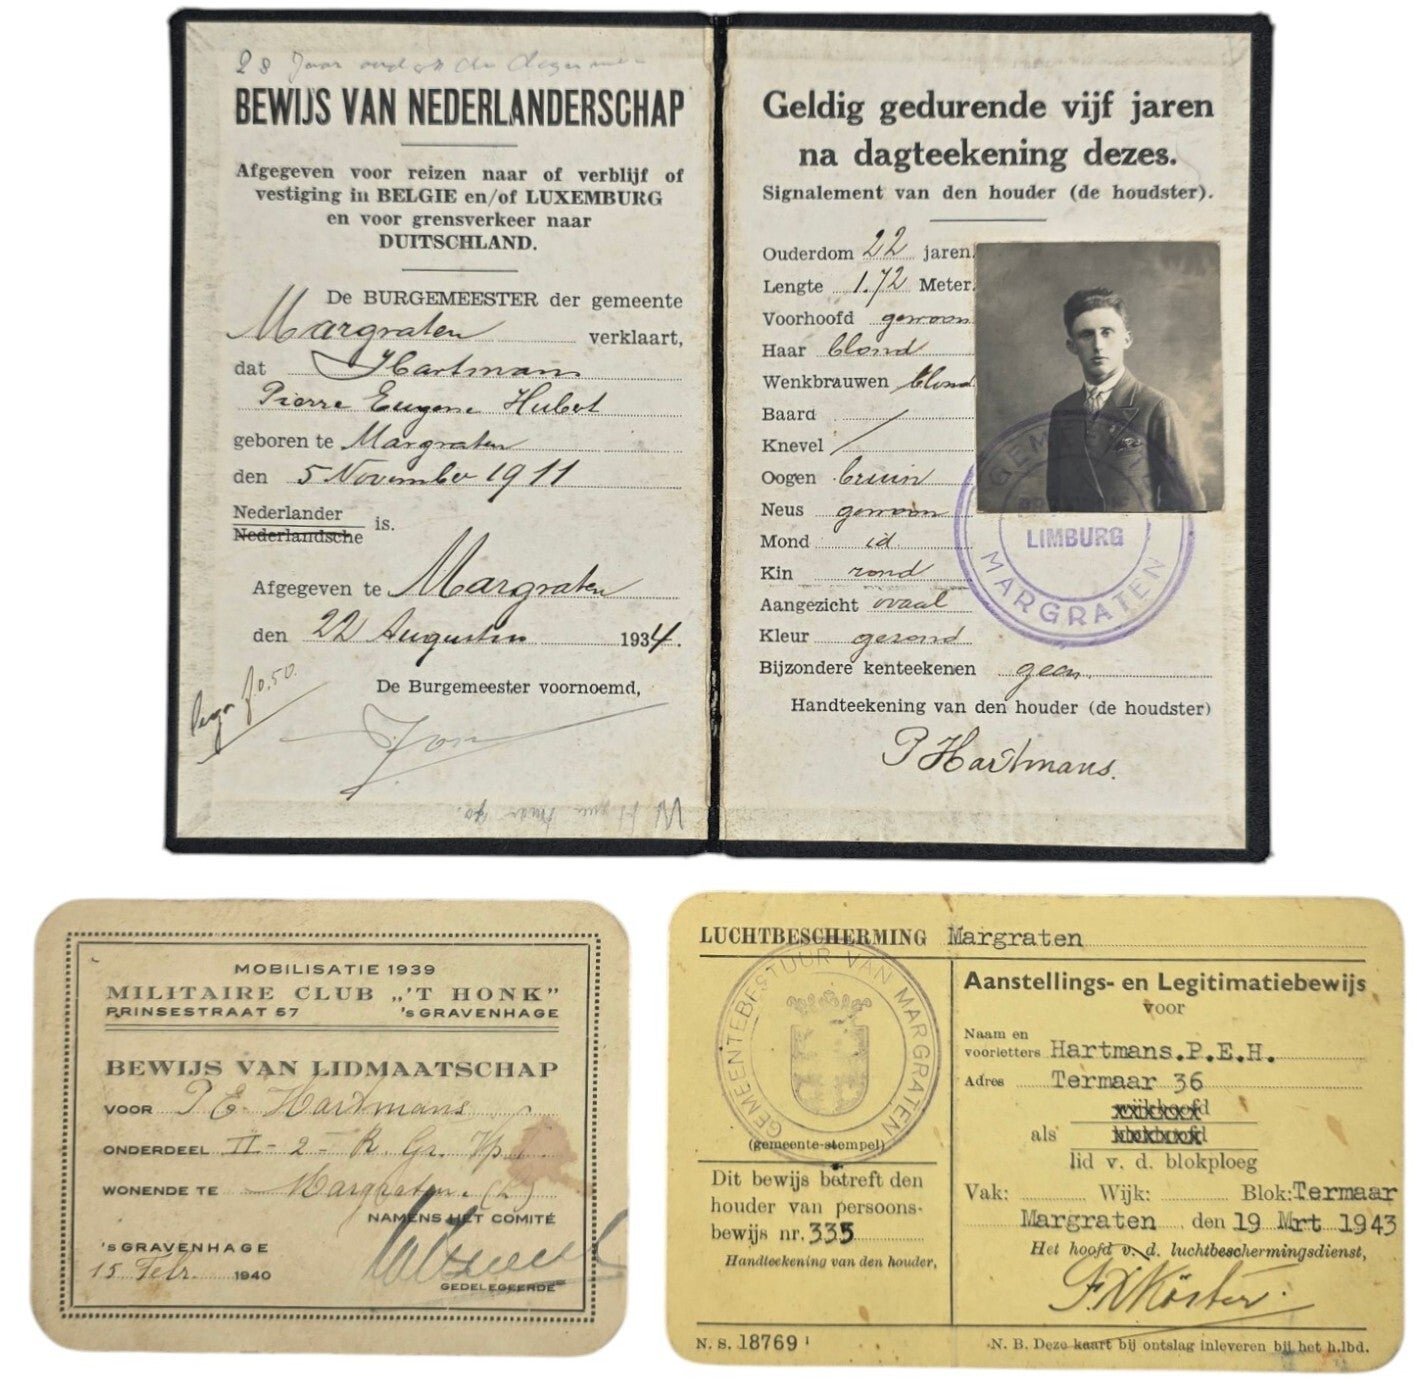 28 Jaar oud
BEWIJS VAN NEDERLANDERSCHAP
Afgegeven voor reizen naar of verblijf of
vestiging in BELGIE en/of LUXEMBURG
en voor grensverkeer naar
DUITSCHLAND.
De BURGEMEESTER der gemeente
Margraten verklaart,
dat Hartmans
Pierre Eugene Hubert
geboren te Margraten
den 5 November 1911
Nederlander
Nederlandsche is.
Afgegeven te Margraten
den 22 Augustus 1934.
De Burgemeester voornoemd,
f 0.50.
Geldig gedurende vijf jaren
na dagteekening dezes.
Signalement van den houder (de houdster).
Ouderdom 22 jaren
Lengte 1.72 Meter.
Voorhoofd gewoon
Haar blond
Wenkbrauwen blond
Baard /
Knevel /
Oogen bruin
Neus gewoon
Mond id
Kin rond
Aangezicht ovaal
Kleur gezond
Bijzondere kenteekenen geen
Handteekening van den houder (de houdster)
P Hartmans.
LIMBURG
MARGRATEN
MOBILISATIE 1939
MILITAIRE CLUB „'T HONK”
PRINSESTRAAT 57 'sGRAVENHAGE
BEWIJS VAN LIDMAATSCHAP
VOOR P E Hartmans
ONDERDEEL II - 2 - R. Gr. 
WONENDE TE Margraten. (L)
NAMENS HET COMITÉ
'sGRAVENHAGE
15 Febr. 1940
GEDELEGEERDE
LUCHTBESCHERMING Margraten
GEMEENTEBESTUUR VAN MARGRATEN
(gemeente-stempel)
Dit bewijs betreft den
houder van persoons-
bewijs nr. 335
Handteekening van den houder,
Aanstellings- en Legitimatiebewijs
voor
Naam en
voorletters Hartmans.P.E.H.
Adres Termaar 36
wijkhoofd
als blokhoofd
lid v. d. blokploeg
Vak: Wijk: Blok: Termaar
Margraten den 19 Mrt 1943
Het hoofd v. d. luchtbeschermingsdienst,
N. S. 18769¹
N. B. Deze kaart bij ontslag inleveren bij het h.lbd.